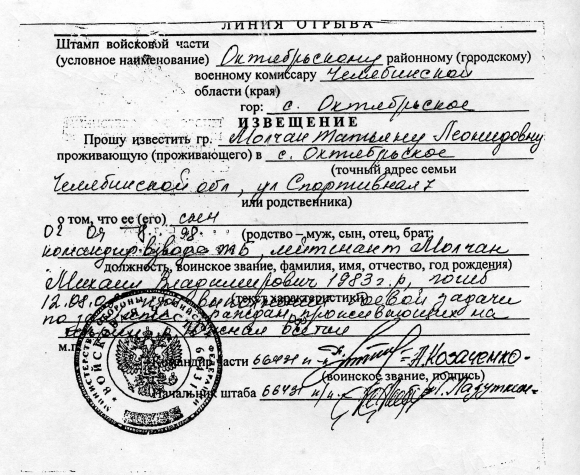 ЛИНИЯ ОТРЫВА
Штамп войсковой части
(условное наименование) Октябрьскому районному (городскому)
военному комиссару Челябинской
области (края)
гор: с. Октябрьское
ИЗВЕЩЕНИЕ
Прошу известить гр. Молчан Татьяну Леонидовну
проживающую (проживающего) в с. Октябрьское
(точный адрес семьи
Челябинской обл, ул Спортивная 7
или родственника)
о том, что ее (его) сын
(родство – муж, сын, отец, брат;
командир взвода лейтенант Молчан
должность, воинское звание, фамилия, имя, отчество, год рождения)
Михаил Владимирович 1983 г.р, погиб
12.08.0 (текст характеристики) боевой задачи
по граждан, проживающих на
Осетии
м.п.
Командир части 66431 А. Козаченко
(воинское звание, подпись)
Начальник штаба 66431
МИНИСТЕРСТВО ОБОРОНЫ РОССИЙСКОЙ ФЕДЕРАЦИИ
ВОЙСКОВАЯ ЧАСТЬ 66431